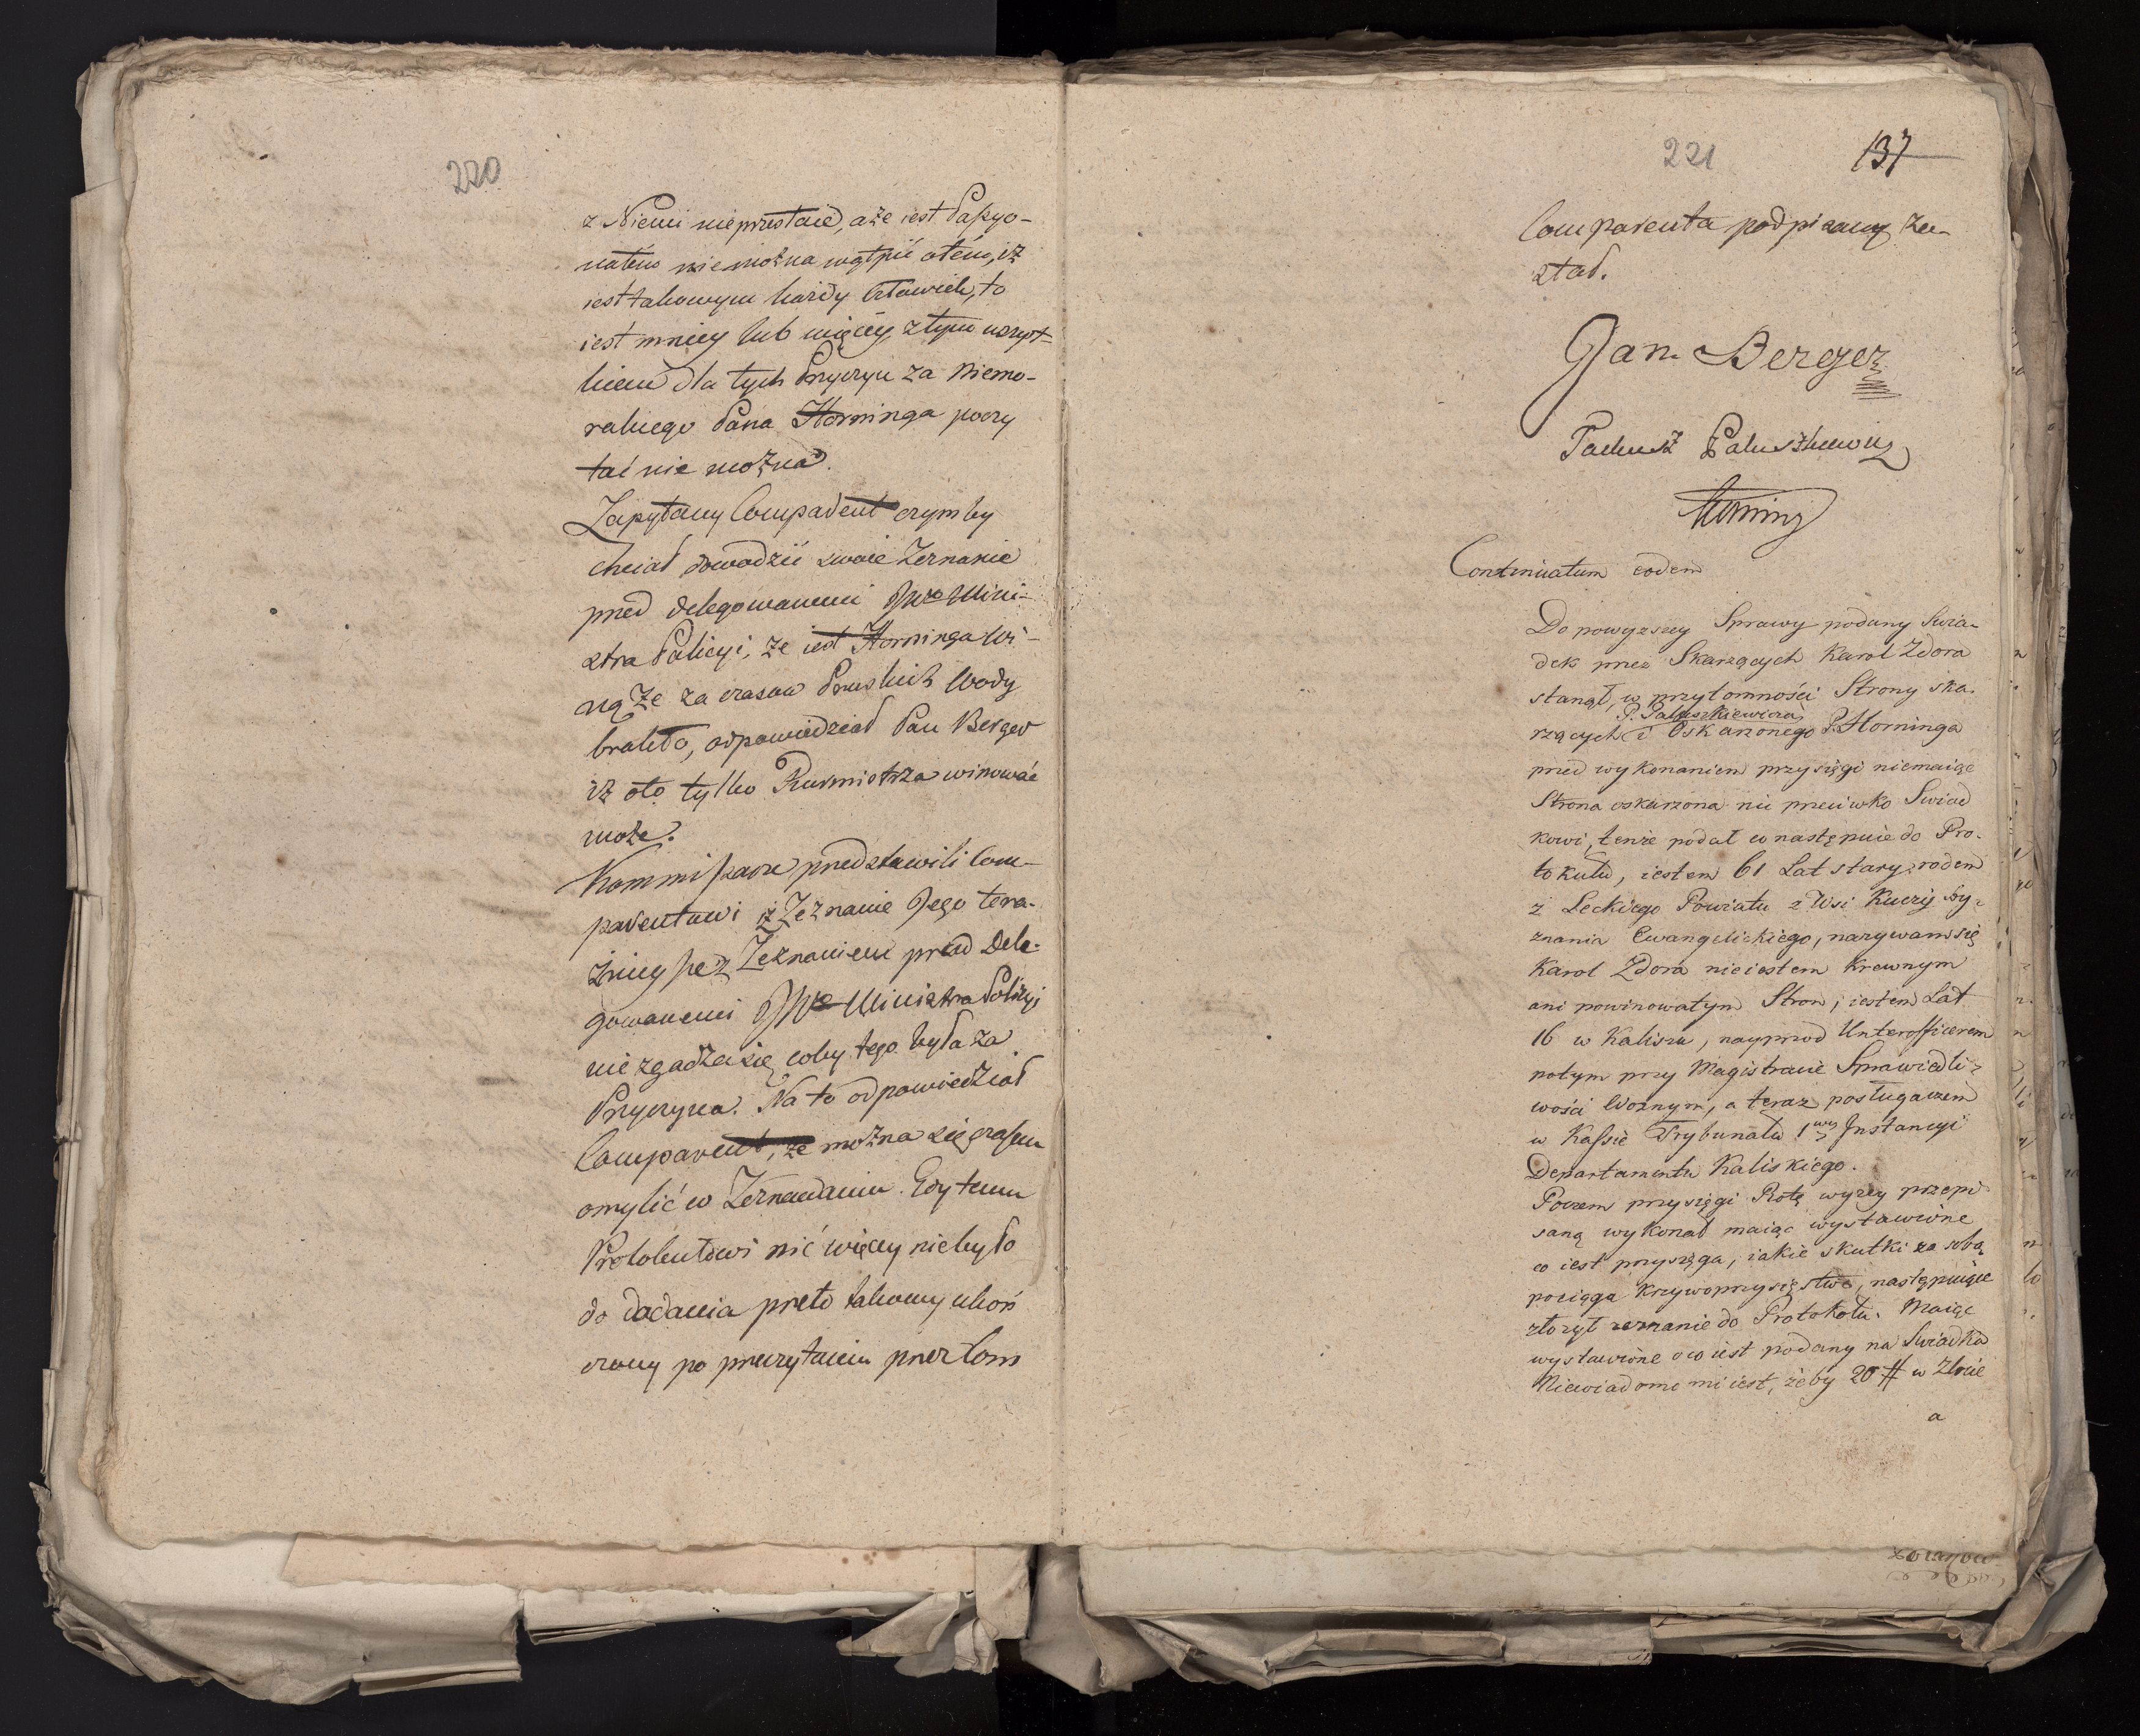 220
z Niemi nieprzestaie, a że iest Passyo-
natem nie można wątpić o tém, iż
iest takowym każdy Człowiek, to
iest mniey lub więcéy, z tym wszyst=
kiem dla tych Przyczyn za Niemo-
ralnego Pana Horninga poczy
tać nie można.
Zapytany Comparent czym by
chciał dowodzić swoie Zeznanie
przed delegowanemi JWo Mini-
stra Policyi, że iest Horninga Wi-
ną że za czasow Pruskich Wody
brakło, odpowiedział Pan Berger
iż oto tylko Rurmistrza winować
może.
Kommissarze przedstawili Com-
parentowi iż Zeznanie Jego tera-
źniey sze z Zeznaniem przed Dele-
gowanemi JWo Ministra Policyi
nie zgadza się coby tego była za
Przyczyna. Na to odpowiedział
Comparent, że można się czasem
omylić w Zeznawaniu. Gdy temu
Protokułowi nic więcey nie było
do dodania przeto takowy ukoń
czony po przeczytaniu przez Com
221 137
Comparenta podpisany zo-
stał.
Jan Berger
Tadeusz Paluszkiewicz
Horning
Continuatum eodem
Do powyzszey Sprawy podany Swia-
dek przez Skarzących Karol Zdora
stanął, w przytomności Strony ska-
P. Paluszkiewicza
rzących i Oskarzonego P. Horninga
przed wykonaniem przysięgi niemaiąc
Strona oskarzona nic przeciwko Swiad
kowi, tenże podał co następuie do Pro-
tokułu, iestem 61 Lat stary, rodem
z Leckiego Powiatu z Wsi Kuczy wy-
znania Ewangelickiego, nazywam się
Karol Zdora nieiestem Krewnym
ani powinowatym Stron, iestem Lat
16 w Kaliszu, nayprzod Unterofficerem
potym przy Magistracie Sprawiedli-
wości Woznym, a teraz posługaczem
w Kassie Trybunału 1wszey Instancyi
Departamentu Kaliskiego.
Poczem przysięgi Rotę wyzey przepi
saną wykonał maiąc wystawione
co iest przysięga, iakie skutki za sobą
pociąga Krzywoprzysięstwo, następuiące
złozył zeznanie do Protokołu. Maiąc
wystawione o co iest podany na Swiadka
Niewiadomo mi iest, żeby 20 # w Złocie
a